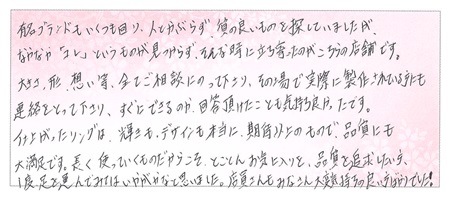 有名ブランドもいくつも回り、人とかぶらず、質の良いものを探していましたが、
なかなか「コレ」というものが見つからず、そんな時に立ち寄ったのがこちらの店舗です。
大きさ、形、想い等、全てご相談にのって下さり、その場で実際に製作されている方にも
連絡をとって下さり、すぐにできるのか、回答頂けたことも気持ち良かったです。
仕上がったリングは、輝きも、デザインも本当に、期待以上のもので、品質にも
大満足です。長く使っていくものだからこそ、とことんお気に入りを、品質を追求したい方、
1度、足を運んでみてはいかがかなと思いました。店員さんもみなさん大変気持ちの良い方ばかりでした!